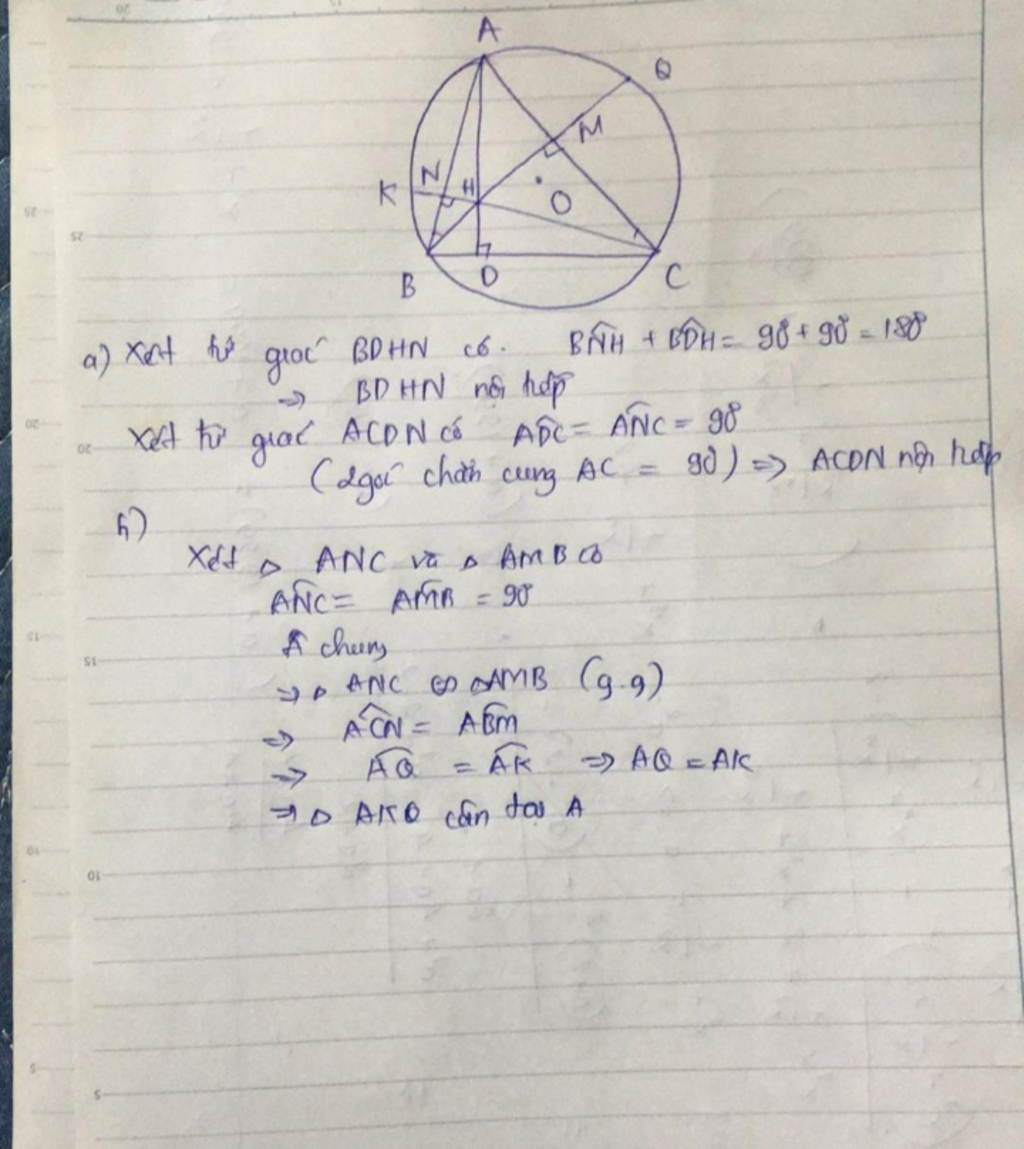 A
Q
M
K N H
O
B D C
a) Xét tứ giác BDHN có. BN̂H + BD̂H = 90° + 90° = 180°
=> BDHN nội tiếp
Xét tứ giác ACDN có AD̂C = AN̂C = 90°
(2 góc chắn cung AC = 90) => ACDN nội tiếp
b)
Xét △ ANC và △ AMB có
AN̂C = AM̂B = 90°
Â chung
=> △ ANC ∽ △AMB (g.g)
=> AĈN = AB̂M
=> A͡Q = A͡K => AQ = AK
=> △ AKQ cân tại A
25
25
20
20
20
15
15
10
10
5
5